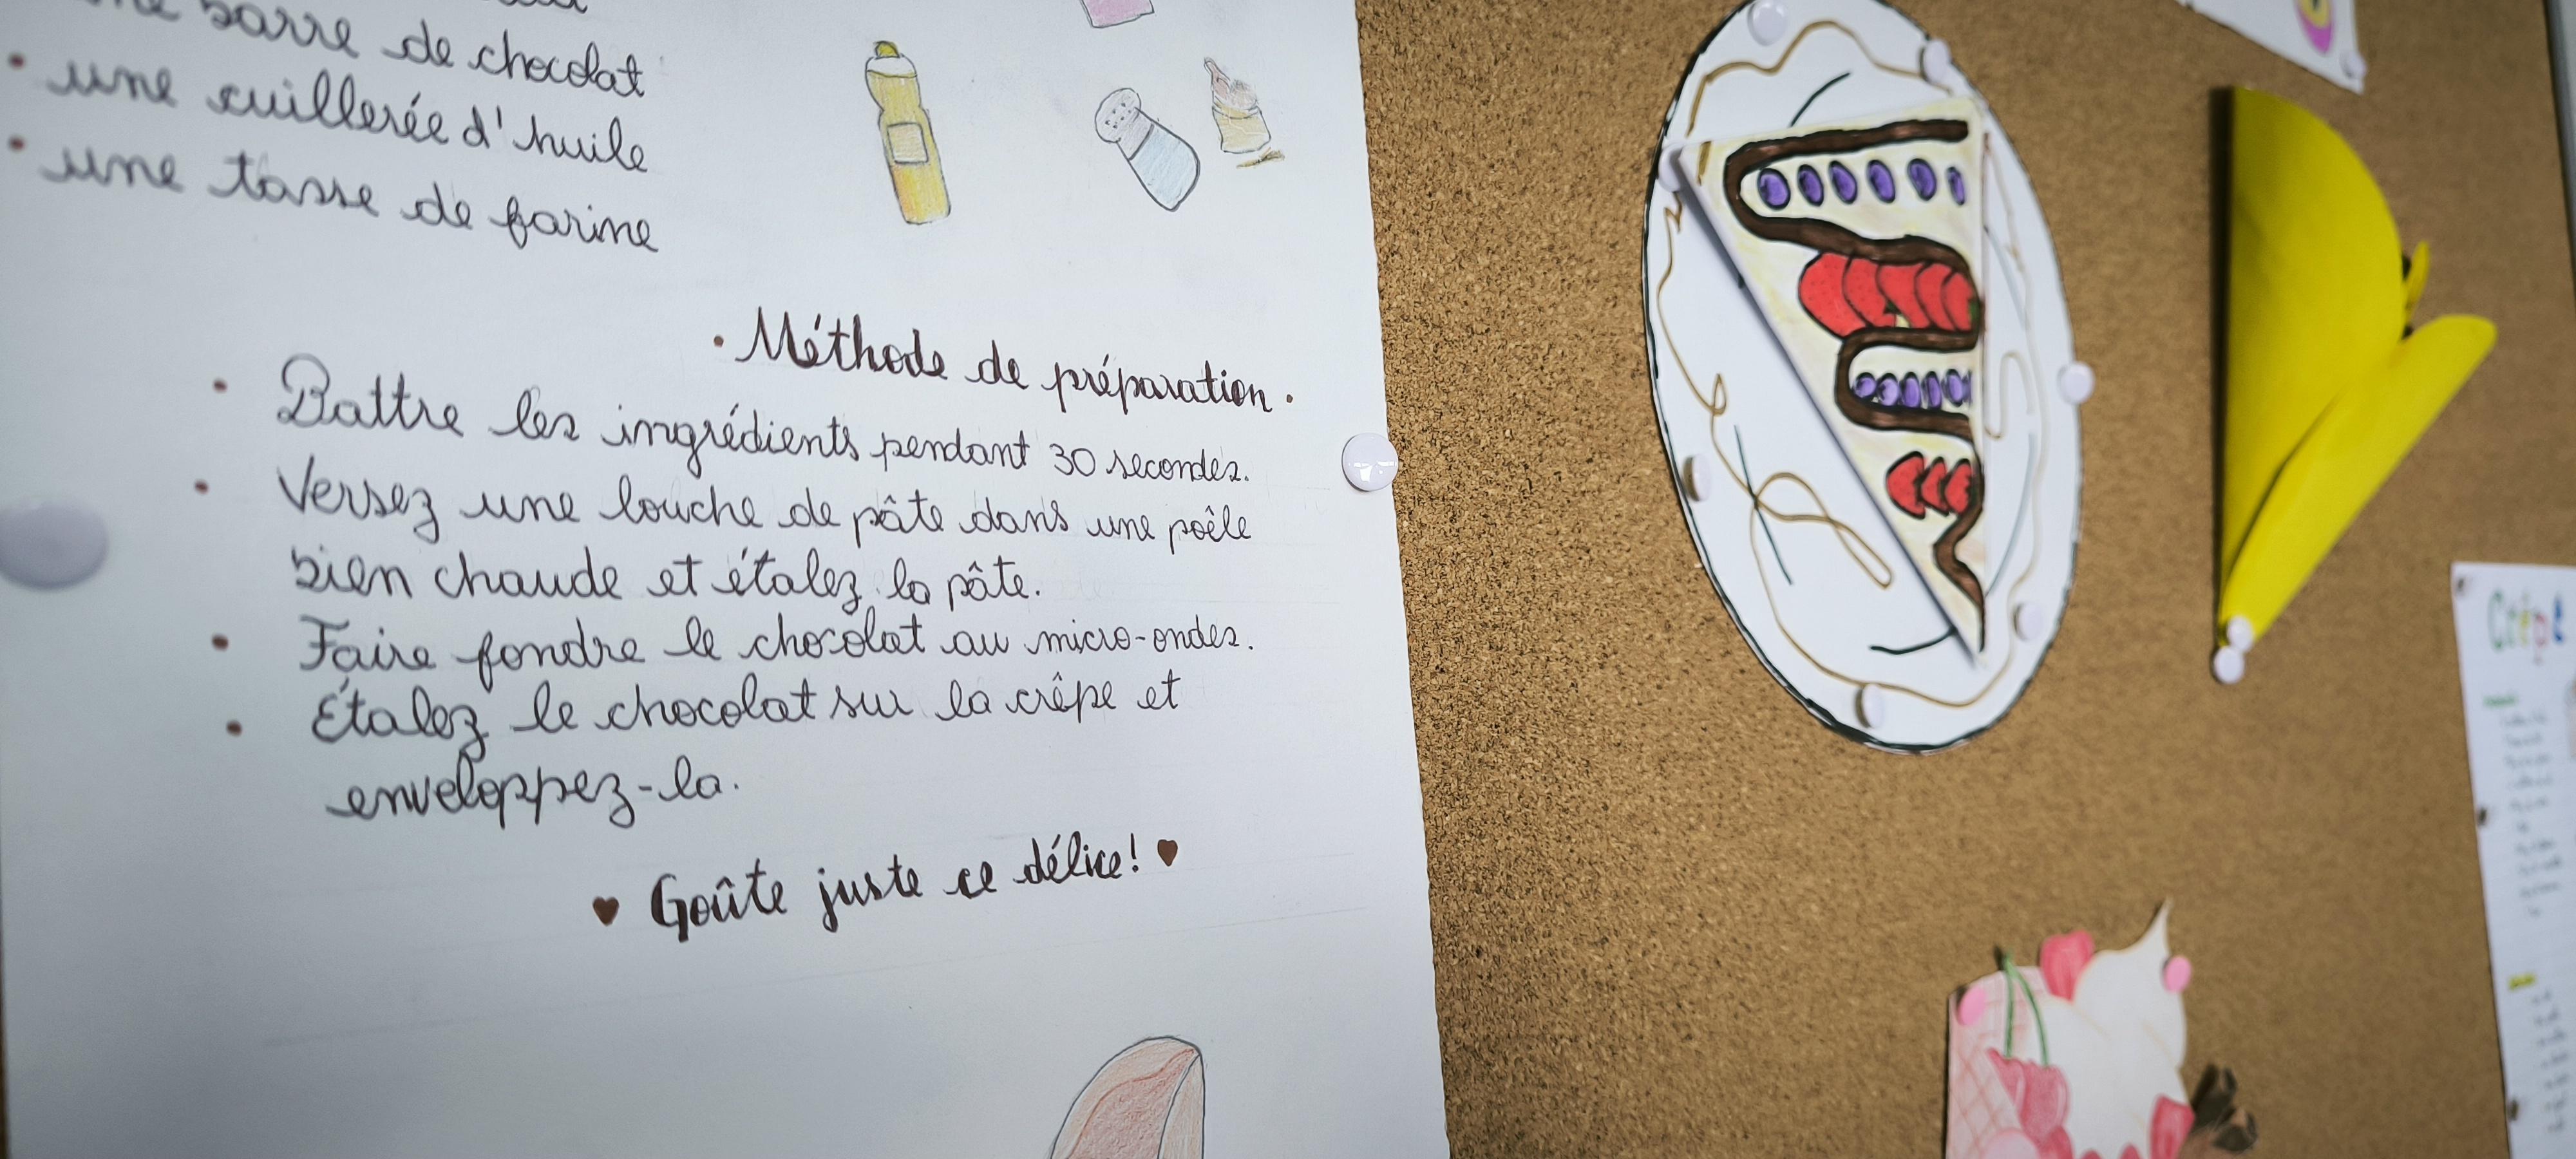 barre de chocolat
• une cuillerée d'huile
• une tasse de farine
• Méthode de préparation •
• Battre les ingrédients pendant 30 secondes.
• Versez une louche de pâte dans une poêle
bien chaude et étalez la pâte.
• Faire fondre le chocolat au micro-ondes.
• Étalez le chocolat sur la crêpe et
enveloppez-la.
♥ Goûte juste ce délice! ♥